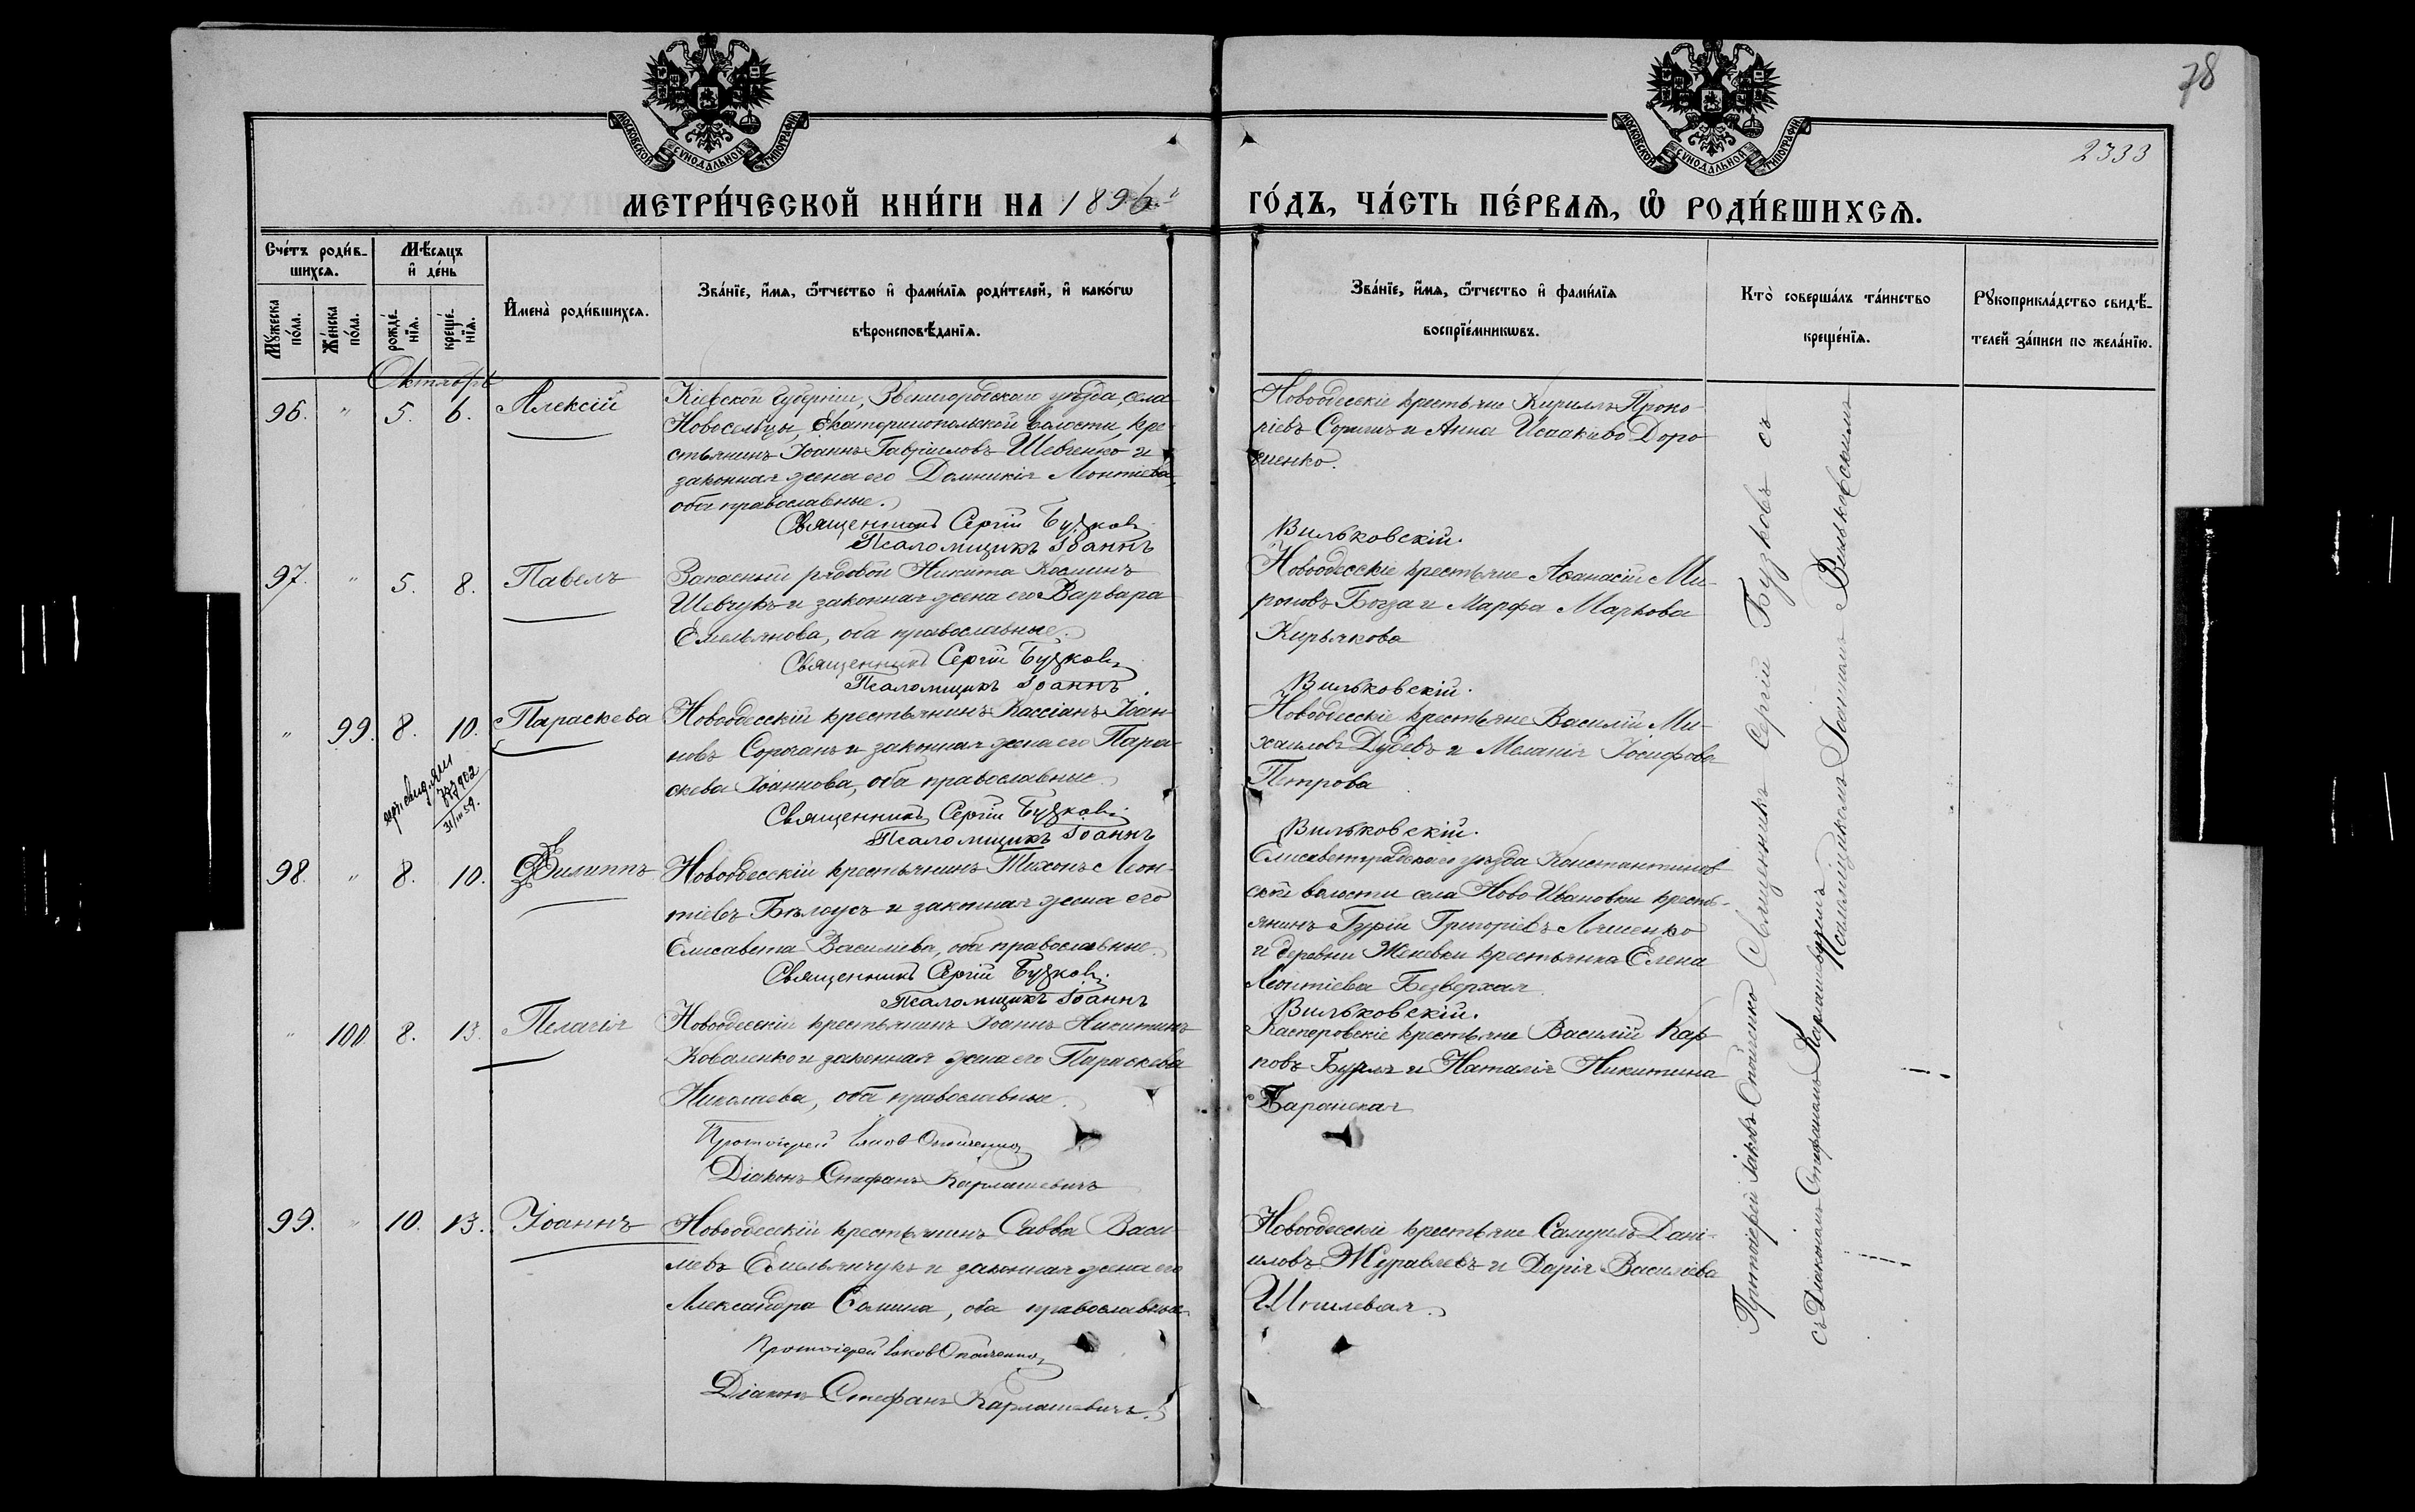 78
2333
МОСКОВСКОЙ СУНОДАЛЬНОЙ ТИПОГРАФІИ
МОСКОВСКОЙ СУНОДАЛЬНОЙ ТИПОГРАФІИ
МЕТРИ́ЧЕСКОЙ КНИ́ГИ НА 1896 ГО́ДЪ, ЧА́СТЬ ПЕ́РВАѦ, Ѡ РОДИ́ВШИХСѦ.
Сче́тъ роди́в-
шихсѧ.
Мꙋ́жеска по́ла.
Же́нска по́ла.
Мѣ́сѧцъ
и҆ де́нь
рожде́-нїѧ.
креще́-нїѧ.
И҆мена̀ роди́вшихсѧ.
Зва́нїе, и҆́мѧ, ѻ҆́тчество и҆ фами́лїѧ роди́телей, и҆ како́гѡ
вѣроисповѣ́данїѧ.
Зва́нїе, и҆́мѧ, ѻ҆́тчество и҆ фами́лїѧ
воспрїе́мникѡвъ.
Кто̀ соверша́лъ та́инство
креще́нїѧ.
Рꙋкоприкла́дство свидѣ́-
телей за́писи по жела́нїю.
Октябрь
96. " 5. 6. Алексій
Кіевской губерніи, Звенигородскаго уѣзда, села
Новосельцы, Екатеринопольской волости, кре
стьянинъ Іоаннъ Гавріиловъ Шевченко и
законная жена его Домникія Леонтіева,
оба православные.
Священникъ Сергій Бузковъ
Псаломщикъ Іоаннъ Вильковскій.
Новоодесскіе крестьяне Кириллъ Проко-
піевъ и Анна Исаакіева Доро
шенко.
97. " 5. 8. Павелъ
Запасный рядовой Никита Косминъ
Шевчукъ и законная жена его Варвара
Емельянова, оба православные.
Священникъ Сергій Бузковъ
Псаломщикъ Іоаннъ Вильковскій.
Новоодесскіе крестьяне Аѳанасій Ми-
роновъ Богза и Марфа Маркова
Кирьякова
" 99. 8. 10. Параскева
Новоодесскій крестьянинъ Кассіанъ Іоан-
новъ Сорочанъ и законная жена его Пара-
скева Іоаннова, оба православные.
Священникъ Сергій Бузковъ
Псаломщикъ Іоаннъ Вильковскій.
Новоодесскіе крестьяне Василій Ми-
хаиловъ Дубевъ и Меланія Іосифова
Петрова
98. " 8. 10. Филиппъ
Новоодесскій крестьянинъ Тихонъ Леон-
тіевъ Бѣлоусъ и законная жена его
Елисавета Василіева, оба православные.
Священникъ Сергій Бузковъ.
Псаломщикъ Іоаннъ Вильковскій.
Елисаветградскаго уѣзда Константинов
ской волости села Ново-Ивановки кресть-
янинъ Гурій Григоріевъ Ляшенко
и деревни крестьянка Елена
Леонтіева Безверхая
" 100. 8. 13. Пелагія
Новоодесскій крестьянинъ Іоаннъ Никитинъ
Коваленко и законная жена его Параскева
Николаева, оба православные.
Протоіерей Іаковъ Опойченко
Діаконъ Стефанъ Карлашевичъ
Касперовскіе крестьяне Василій Кар
повъ и Наталія Никитина
Баранская
99. " 10. 13. Іоаннъ
Новоодесскій крестьянинъ Савва Васи-
ліевъ Емельянчукъ и законная жена его
Александра Сомина, оба православные.
Протоіерей Іаковъ Опойченко
Діаконъ Стефанъ Карлашевичъ.
Новоодесскіе крестьяне Самуилъ Дані-
иловъ Журавлевъ и Дарія Василіева
Протоіерей Іаковъ Опойченко Священникъ Сергій Бузковъ съ
съ Діакономъ Стефаномъ Карлашевичемъ Псаломщикомъ Іоанномъ Вильковскимъ